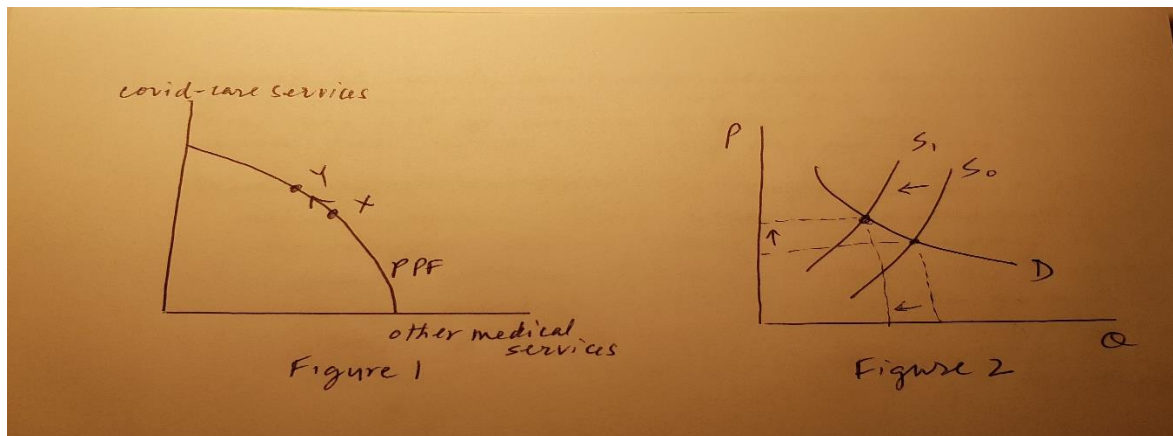 covid-care services
Y
X
PPF
other medical
services
Figure 1
P
S1
S0
D
Q
Figure 2